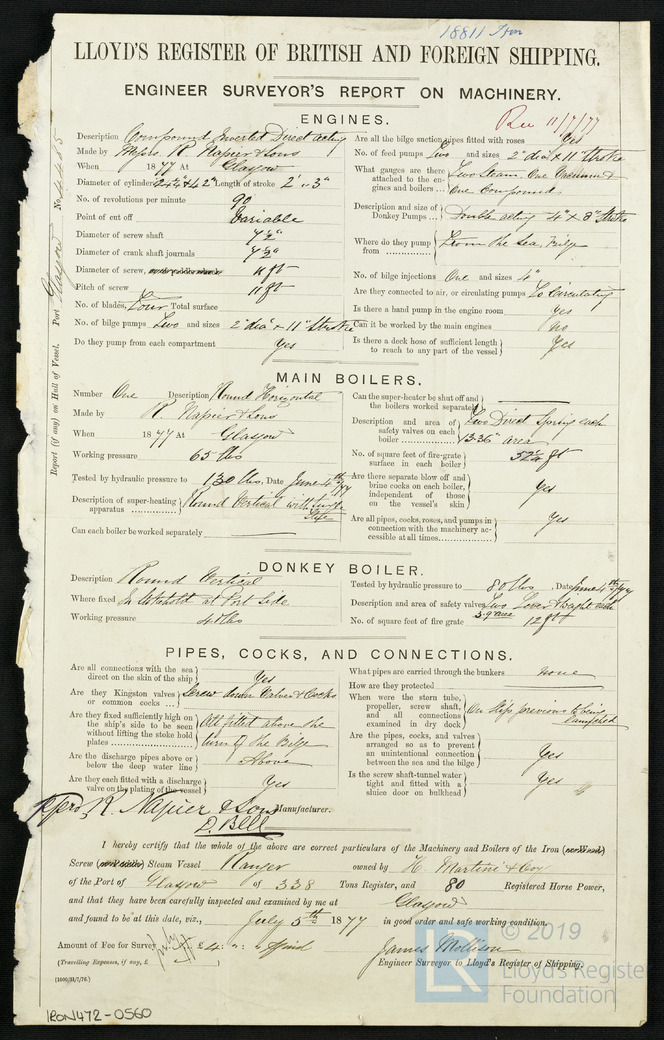 18811 Iron
LLOYD'S REGISTER OF BRITISH AND FOREIGN SHIPPING.
ENGINEER SURVEYOR'S REPORT ON MACHINERY.
Rec 11/7/77
Report (if any) on Hull of Vessel. Port Glasgow No.
ENGINES.
Description Compound Inverted Direct acting
Made by Messrs. R. Napier & Sons
When 1877 At Glasgow
Diameter of cylinders 24" + 42" Length of stroke 2' .. 3"
No. of revolutions per minute 90
Point of cut off Variable
Diameter of screw shaft 7½"
Diameter of crank shaft journals 7½"
Diameter of screw, 11 ft
Pitch of screw 11 ft
No. of blades, Four Total surface
No. of bilge pumps Two and sizes 2" dia x 11" Stroke
Do they pump from each compartment Yes
Are all the bilge suction pipes fitted with roses Yes
No. of feed pumps Two and sizes 2" dia x 11" Stroke
What gauges are there attached to the engines and boilers ... Two Steam, One Vacuum & One Compound.
Description and size of Donkey Pumps ... Double acting 4" x 8" Stroke
Where do they pump from From the Sea, Bilge
No. of bilge injections One and sizes 4"
Are they connected to air, or circulating pumps To Circulating
Is there a hand pump in the engine room Yes
Can it be worked by the main engines No
Is there a deck hose of sufficient length to reach to any part of the vessel Yes
MAIN BOILERS.
Number One Description Round Horizontal
Made by R. Napier & Sons
When 1877 At Glasgow
Working pressure 65 lbs
Tested by hydraulic pressure to 130 lbs. Date June 4th/77
Description of super-heating apparatus Round Vertical with
Can each boiler be worked separately
Can the super-heater be shut off and the boilers worked separately
Description and area of safety valves on each boiler Two Direct Spring each 13.36" area
No. of square feet of fire-grate surface in each boiler 52¼ ft
Are there separate blow off and brine cocks on each boiler, independent of those on the vessel's skin Yes
Are all pipes, cocks, roses, and pumps in connection with the machinery accessible at all times Yes
DONKEY BOILER.
Description Round Vertical
Where fixed In Stokehold at Port Side
Working pressure 40 lbs
Tested by hydraulic pressure to 80 lbs, Date June 4th/77
Description and area of safety valves Two Lever & Weight each
No. of square feet of fire grate 12 ft
PIPES, COCKS, AND CONNECTIONS.
Are all connections with the sea direct on the skin of the ship Yes
Are they Kingston valves or common cocks Screw down Valves & Cocks
Are they fixed sufficiently high on the ship's side to be seen without lifting the stoke hold plates All fitted above the turn of the Bilge
Are the discharge pipes above or below the deep water line Above
Are they each fitted with a discharge valve on the plating of the vessel Yes
What pipes are carried through the bunkers none
How are they protected
When were the stern tube, propeller, screw shaft, and all connections examined in dry dock On Slip previous to being launched
Are the pipes, cocks, and valves arranged so as to prevent an unintentional connection between the sea and the bilge Yes
Is the screw shaft-tunnel water tight and fitted with a sluice door on bulkhead Yes
ppro R. Napier & Sons Manufacturer.
D. Bell
I hereby certify that the whole of the above are correct particulars of the Machinery and Boilers of the Iron (or Wood)
Screw Steam Vessel Ranger owned by H. Martini & Coy
of the Port of Glasgow of 338 Tons Register, and 80 Registered Horse Power,
and that they have been carefully inspected and examined by me at Glasgow
and found to be at this date, viz., July 5th 1877 in good order and safe working condition.
Amount of Fee for Survey £4 : " : " James Mollison
(Travelling Expenses, if any, £ ) Engineer Surveyor to Lloyd's Register of Shipping.
IRON472-0560
© 2019
Lloyd's Register
Foundation
LR